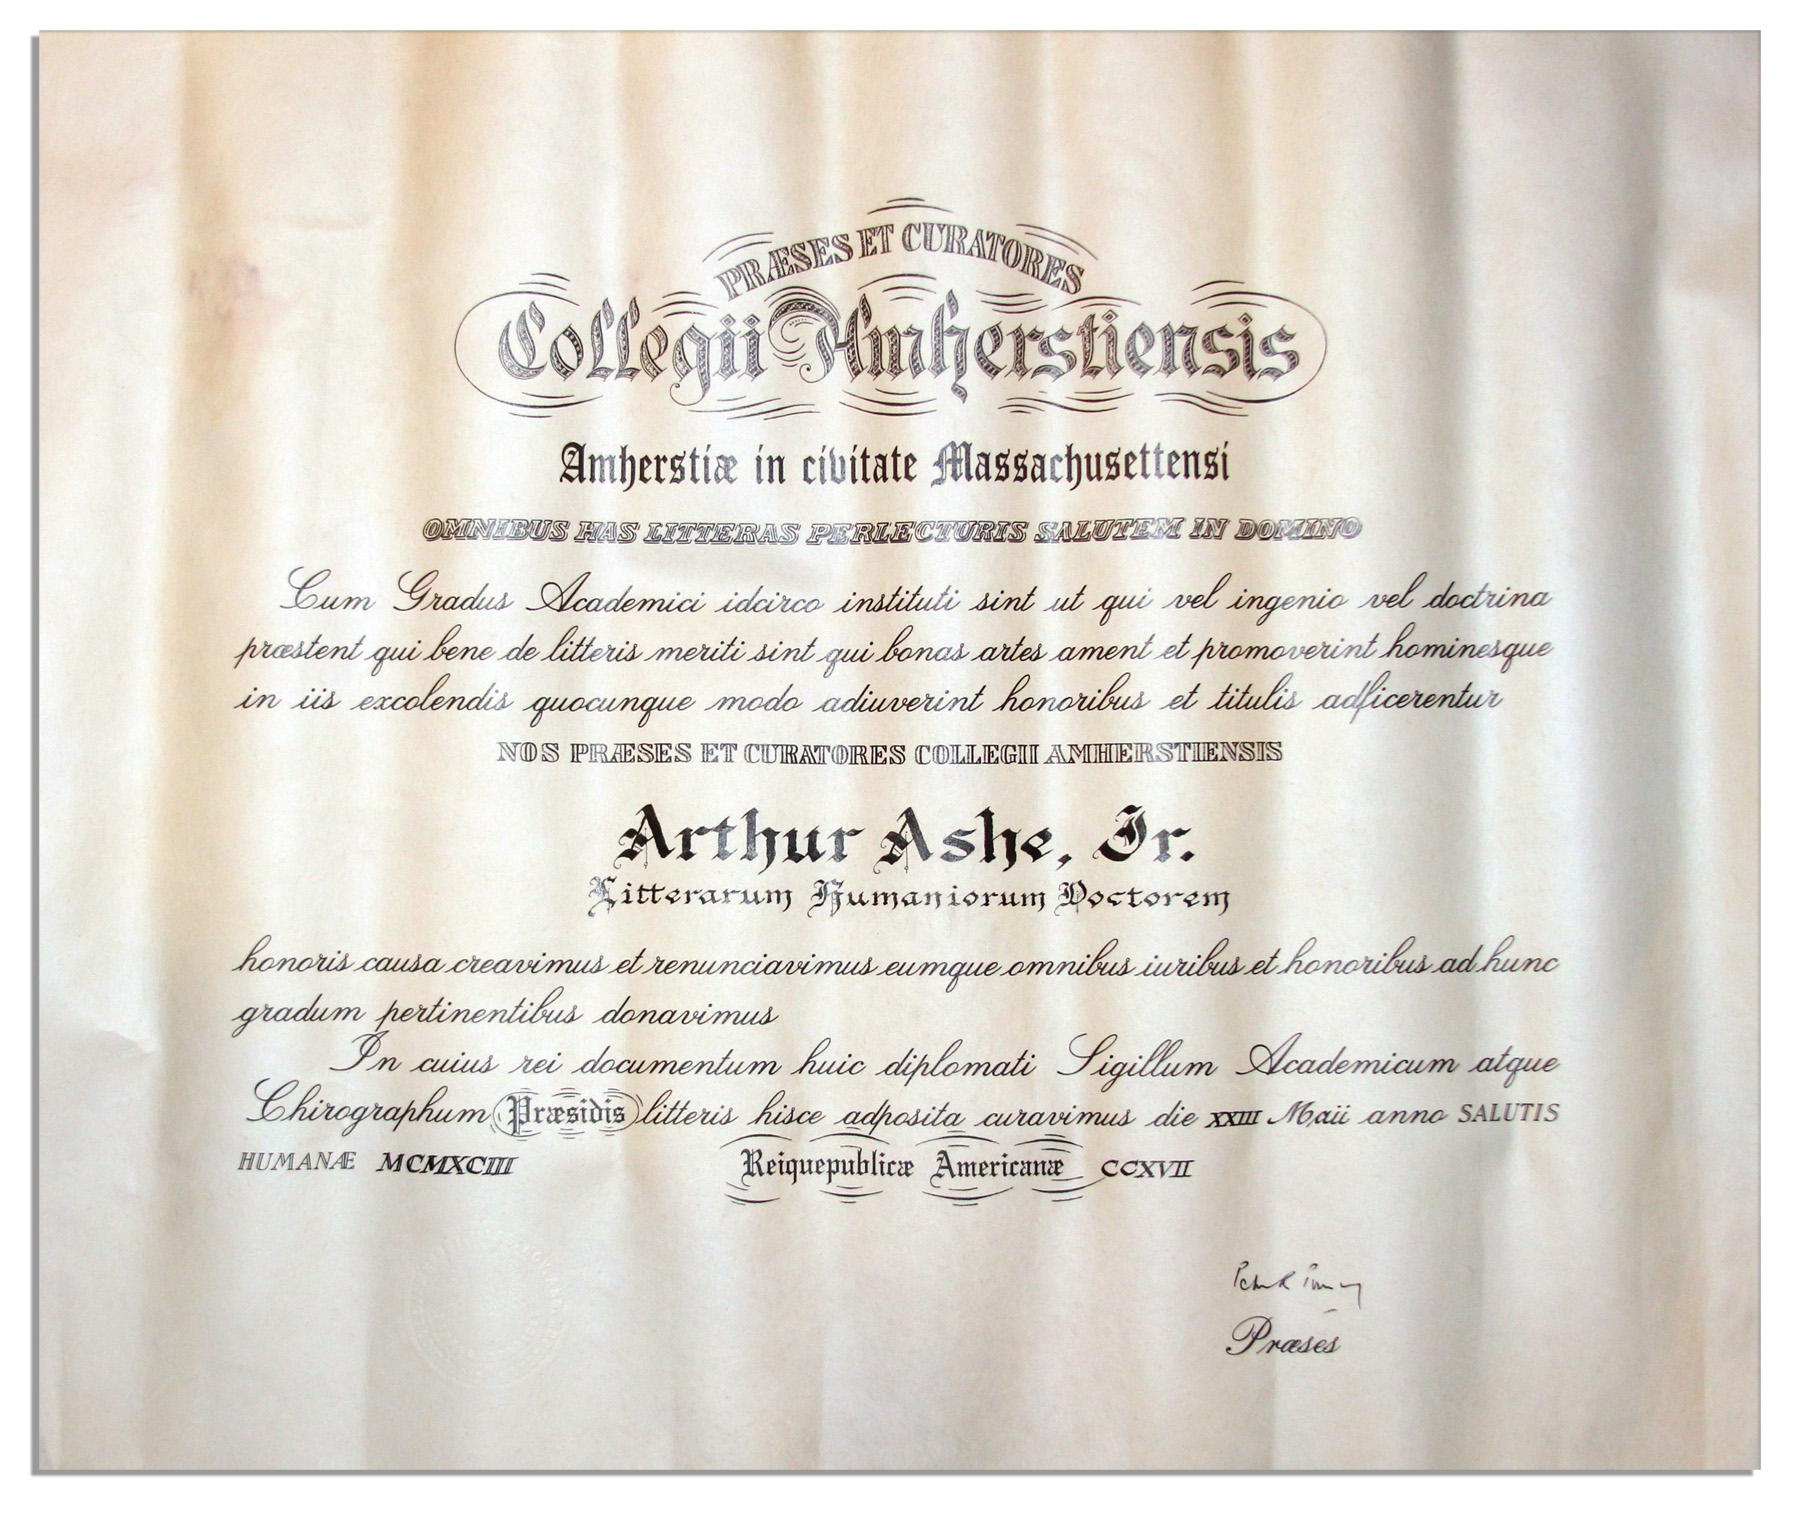 PRÆSES ET CURATORES
Collegii Amherstiensis
Amherstiæ in civitate Massachusettensi
OMNIBUS HAS LITTERAS PERLECTURIS SALUTEM IN DOMINO
Cum Gradus Academici idcirco instituti sint ut qui vel ingenio vel doctrina
præstent qui bene de litteris meriti sint qui bonas artes ament et promoverint hominesque
in iis excolendis quocunque modo adiuverint honoribus et titulis adficerentur
NOS PRÆSES ET CURATORES COLLEGII AMHERSTIENSIS
Arthur Ashe, Jr.
Litterarum Humaniorum Doctorem
honoris causa creavimus et renunciavimus eumque omnibus iuribus et honoribus ad hunc
gradum pertinentibus donavimus
In cuius rei documentum huic diplomati Sigillum Academicum atque
Chirographum Præsidis litteris hisce adposita curavimus die XXIII Maii anno SALUTIS
HUMANÆ MCMXCIII Reiquepublicæ Americanæ CCXVII
Præses